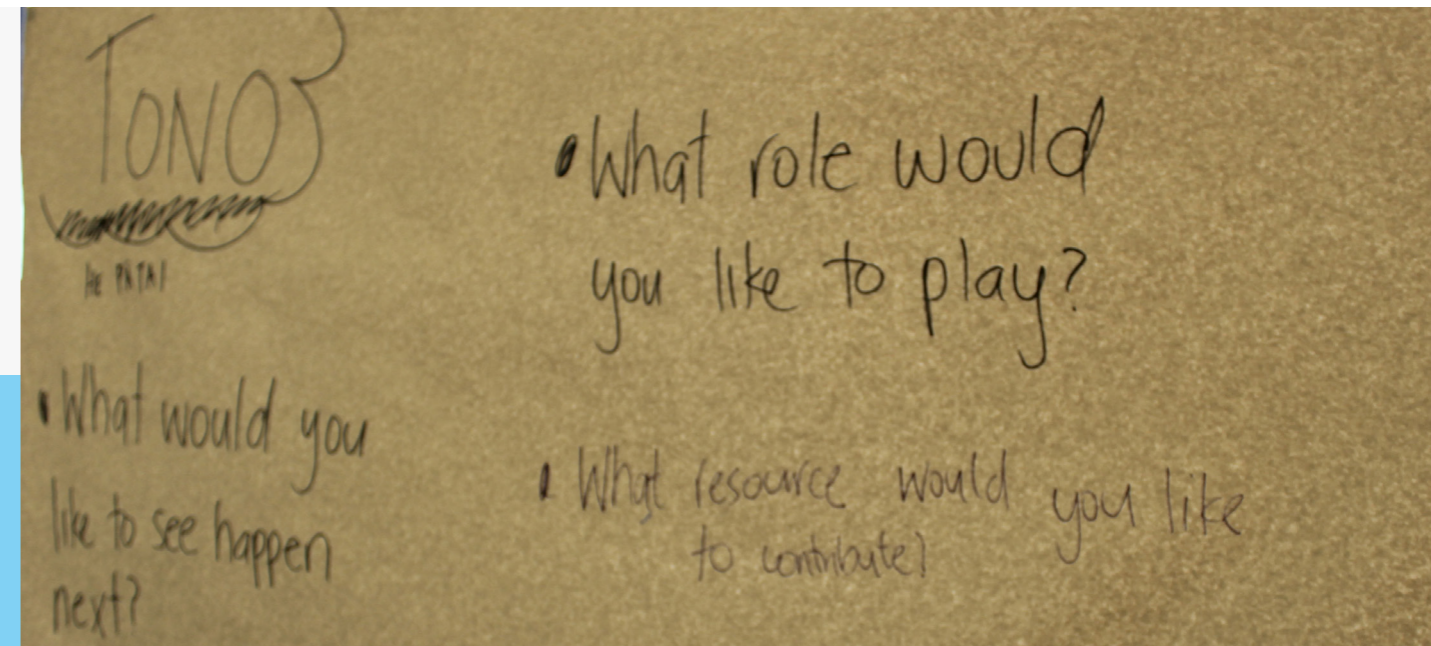 TONO
He PATAI
• What would you
like to see happen
next?
• What role would
you like to play?
• What resource would you like
to contribute?